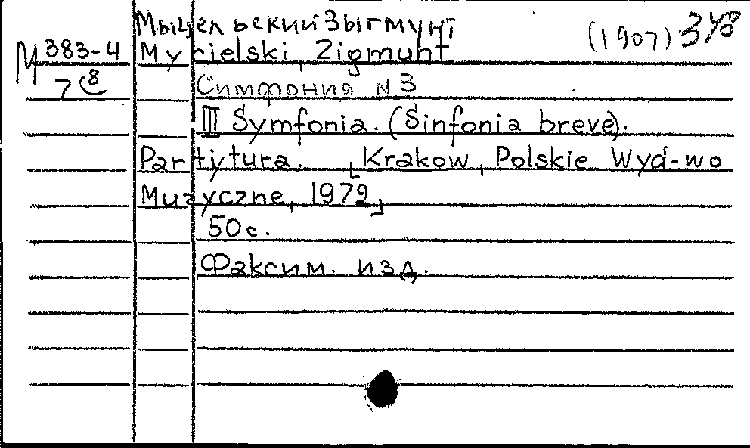 Мыцельский Зыгмунт
Mycielski, Zigmunt (1907) 348
М 383-4
78
Симфония N 3
III Symfonia. (Sinfonia breve).
Partytura. [Krakow, Polskie Wyd-wo
Muzyczne, 1972]
50 с.
Факсим. изд.